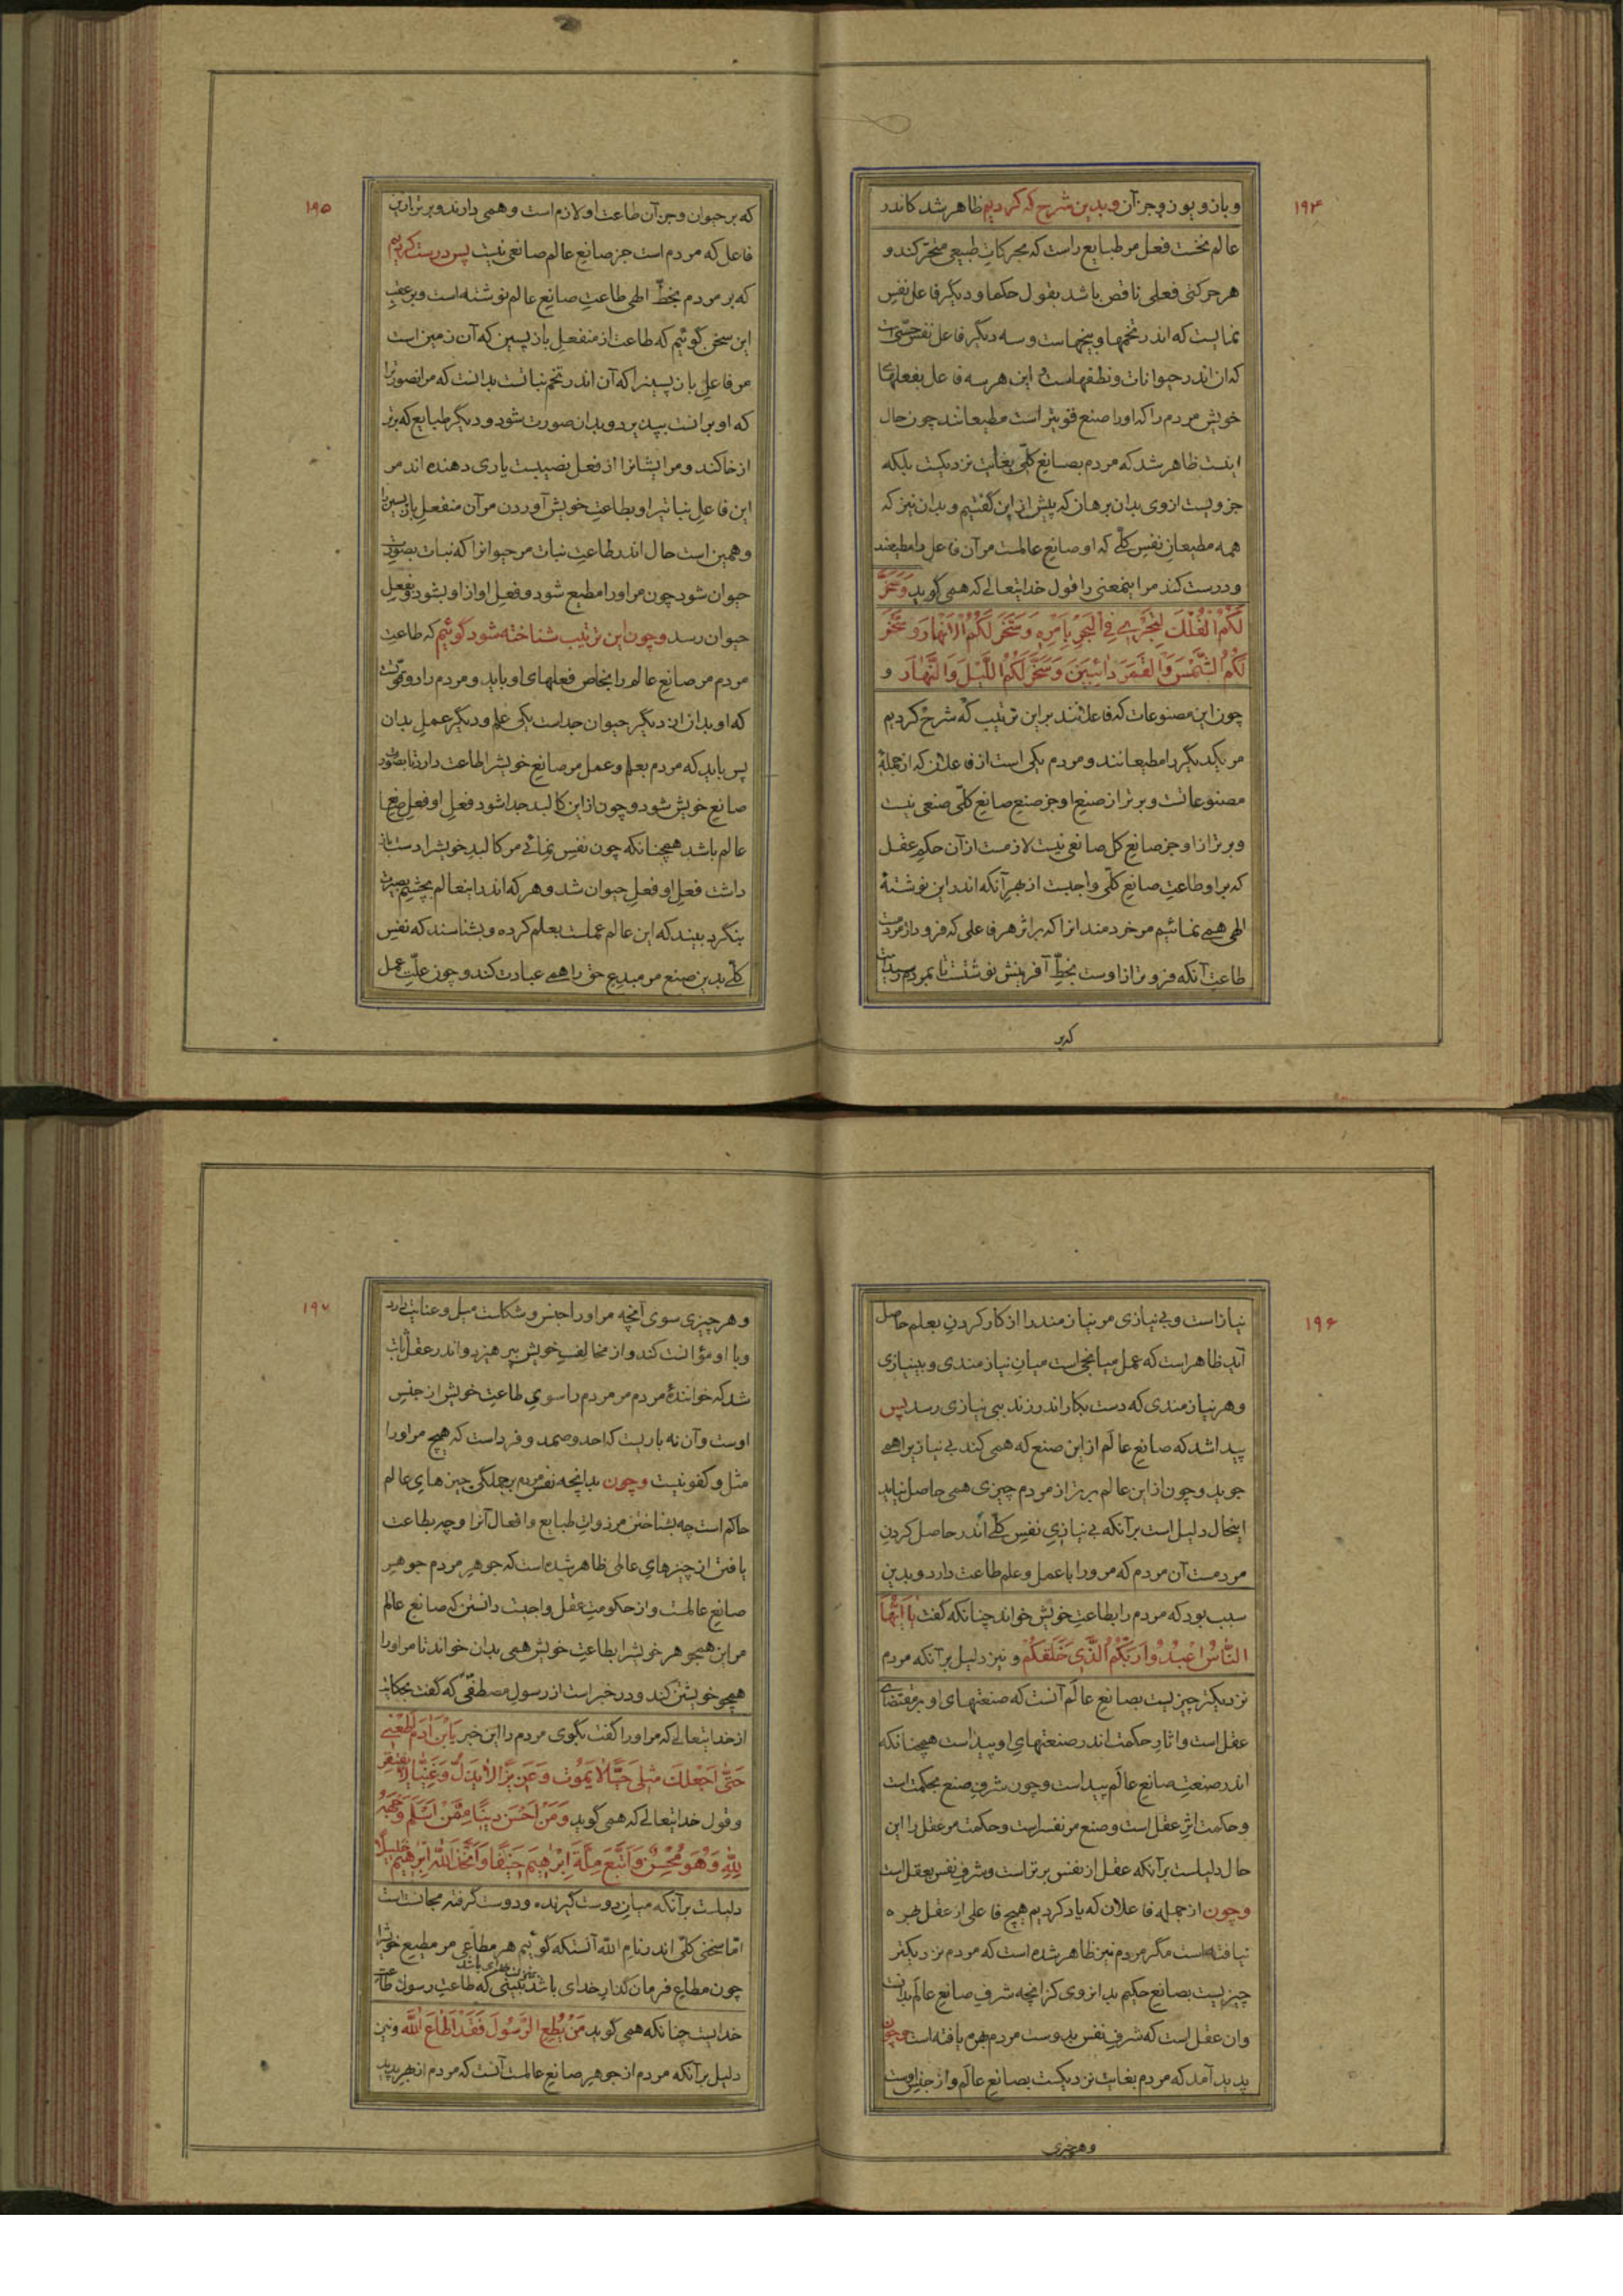 ۱۹۴
و باز و یوز و جز آن و بدین شرح که کردیم ظاهر شد کاندر
عالم نخست فعل مر طبایع راست که بحرکات طبیعی متحرکند و
هر حرکتی فعلی ناقص باشد بقول حکما و دیگر فاعل نفس
نمایست که اندر تخمها و بیخهاست و سه دیگر فاعل نفس حسّی است
که آن اندر حیوانات و نطفهاست و این هر سه فاعل بفعلهای
خویش مردم را که او را صنع قویتر است مطیعانند چون حال
اینست ظاهر شد که مردم بصانع کلّی بغایت نزدیکست بلکه
جزویست ازوی بدان برهان که پیش از این گفتیم و بدان نیز که
همه مطیعان نفس کلّی که او صانع عالمست مر آن فاعل را مطیعند
و درست کند مر اینمعنی را قول خدایتعالی که همی گوید وَسَخَّرَ
لَکُمُ الْفُلْکَ لِتَجْرِیَ فِی الْبَحْرِ بِاَمْرِهِ وَسَخَّرَ لَکُمُ الْاَنْهارَ وَسَخَّرَ
لَکُمُ الشَّمْسَ وَالْقَمَرَ دائِبَیْنِ وَسَخَّرَ لَکُمُ اللَّیْلَ وَالنَّهارَ و
چون این مصنوعات که فاعلانند بر این ترتیب که شرح کردیم
مر یکدیگر را مطیعانند و مردم یکی است از فاعلان که از جملهٔ
مصنوعاتست و برتر از صنع او جز صنع صانع کلّی صنعی نیست
و برتر از او جز صانع کل صانعی نیست لازمست از آن حکم عقل
که بر او طاعت صانع کلّی واجبست از بهر آنکه اندر این نوشتهٔ
الهی همی نمائیم مر خردمندانرا که بر اثر هر فاعلی که فرود از مردمست
طاعت آنکه فروتر از اوست بخطّ آفرینش نوشتست تا بمردم رسیدست
که بر
۱۹۵
که بر حیوان و جز آن طاعت او لازم است و همی دارند و برتر از این
فاعل که مردم است جز صانع عالم صانعی نیست پس درست کردیم
که بر مردم بخطّ الهی طاعت صانع عالم نوشته است و بر عقب
این سخن گوئیم که طاعت از منفعل باز پسین که آن زمین است
مر فاعل باز پسینرا که آن اندر تخم نباتست بدانست که مر انصورترا
که او برانست بپذیرد و بدان صورت شود و دیگر طبایع که برتر
از خاکند و مر ایشانرا از فعل نصیبست یاری دهنده اند مر
این فاعل نباتیرا و بطاعت خویش آوردن مر آن منفعل باز پسین را
و همین است حال اندر طاعت نبات مر حیوانرا که نبات بصورت
حیوان شود چون مر اورا مطیع شود و فعل او از او بشود و بفعل
حیوان رسد و چون این ترتیب شناخته شود گوئیم که طاعت
مردم مر صانع عالم را بخاص فعلهای او باید و مردم را دو قوّتست
که او بدان از دیگر حیوان جداست یکی علم و دیگر عمل بدان
پس باید که مردم بعلم و عمل مر صانع خویشرا طاعت دارد تا بصورت
صانع خویش شود و چون از این کالبد جدا شود فعل او فعل صانع
عالم باشد همچنانکه چون نفس نمائی مر کالبد خویشرا دست باز
داشت فعل او فعل حیوان شد و هر که اندر اینعالم بچشم بصیرت
بنگرد ببیند که این عالم عملست بعلم کرده و بشناسند که نفس
کلّی بدین صنع مر مبدع حق را همی عبادت کند و چون علّت عمل
۱۹۶
نیاز است و بی نیازی مر نیازمند را از کار کردن بعلم حاصل
آید ظاهر است که عمل میانجی است میان نیازمندی و بینیازی
و هر نیازمندی که دست بکار اندر زند ببی نیازی رسد پس
پیدا شد که صانع عالم از این صنع که همی کند بی نیازیرا همی
جوید و چون از این عالم برتر از مردم چیزی همی حاصل نیاید
اینحال دلیل است بر آنکه بی نیازی نفس کلّی اندر حاصل کردن
مردمست آن مردم که مرورا با عمل و علم طاعت دارد و بدین
سبب بود که مردم را بطاعت خویش خواند چنانکه گفت یا اَیُّهَا
النّاسُ اعْبُدُوا رَبَّکُمُ الَّذی خَلَقَکُمْ و نیز دلیل بر آنکه مردم
نزدیکتر چیزیست بصانع عالم آنست که صنعتهای او بر مقتضای
عقل است و اثار حکمت اندر صنعتهای او پیداست همچنانکه
اندر صنعت صانع عالم پیداست و چون شرف صنع بحکمت است
و حکمت اثر عقل است و صنع مر نفس راست و حکمت مر عقل را این
حال دلیلست بر آنکه عقل از نفس برتر است و شرف نفس بعقل است
و چون از جمله فاعلان که یاد کردیم هیچ فاعلی از عقل بهره
نیافته است مگر مردم نیز ظاهر شده است که مردم نزدیکتر
چیزیست بصانع حکیم بدانروی کز آنچه شرف صانع عالم بدانست
و ان عقل است که شرف نفس بدوست مردم بهره یافته است و چون
پدید آمد که مردم بغایت نزدیکست بصانع عالم و از جنس اوست
و هر چیزی
۱۹۷
و هر چیزی سوی آنچه مر او را جنس و شکلست میل و عنایت دارد
و با او مؤانست کند و از مخالف خویش بپرهیزد و اندر عقل ثابت
شد که خوانندهٔ مردم مر مردم را سوی طاعت خویش از جنس
اوست و آن نه باریست که احد و صمد و فرد است که هیچ مر اورا
مثل و کفو نیست و چون بدانچه نفس مردم بر جملگی چیزهای عالم
حاکم است چه بشناختن مر ذوات طبایع و افعال آنرا و چه بطاعت
یافتن از چیزهای عالی ظاهر شده است که جوهر مردم جوهر
صانع عالمست و از حکومت عقل واجبست دانستن که صانع عالم
مر این همچو هر خویشرا بطاعت خویش همی بدان خواند تا مر اورا
همچو خویشتن کند و در خبر است از رسول مصطفی که گفت بحکایت
از خدایتعالی که مر اورا گفت بگوی مردم را این خبر یَابْنَ آدَمَ اَطِعْنی
حَتّی اَجْعَلَکَ مِثْلی حَیًّا لا یَمُوتُ وَعَزیزًا لا یَذِلُّ وَغَنِیًّا لا یَفْتَقِرُ
و قول خدایتعالی که همی گوید وَمَنْ اَحْسَنُ دینًا مِمَّنْ اَسْلَمَ وَجْهَهُ
لِلّهِ وَهُوَ مُحْسِنٌ وَاتَّبَعَ مِلَّةَ اِبْرهیمَ حَنیفًا وَاتَّخَذَ اللّهُ اِبْرهیمَ خَلیلًا
دلیلست بر آنکه میان دوست گیرنده و دوست گرفته مجانست است
امّا سخنی کلّی اندر نام اللّه آنستکه گوئیم هر مطاعی مر مطیع خویشرا
چون مطاع فرمان گذار خدای باشد نبینی که طاعت رسول طاعت
خدایست چنانکه همی گوید مَنْ یُطِعِ الرَّسُولَ فَقَدْ اَطاعَ اللّهَ و نیز
دلیل بر آنکه مردم از جوهر صانع عالمست آنست که مردم از بهر پدید